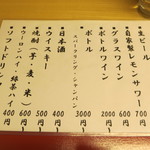 生ビール 700円
自家製レモンサワー 600円
グラスワイン 600円
ボトルワイン 2000円〜
スパークリング・シャンパン
ボトル 3000円〜
日本酒 400円〜
ウイスキー 500円〜
焼酎(芋・麦・米) 400円〜
ウーロンハイ・緑茶ハイ 600円
ソフトドリンク 400円